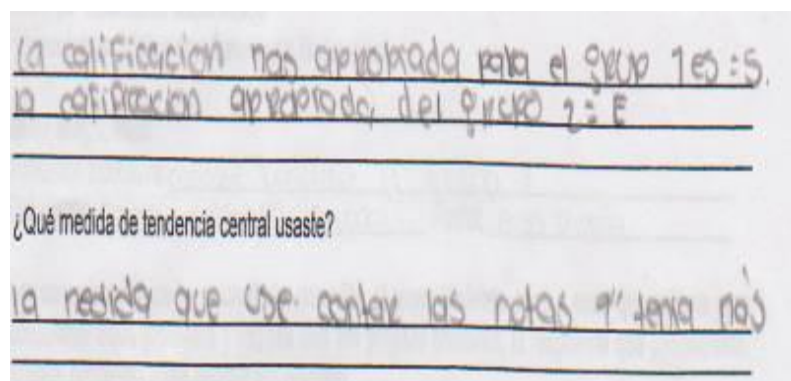 la calificacion mas aprobada para el grup 1 es = S.
la calificacion apropiada, del grupo 2 = E
¿Qué medida de tendencia central usaste?
la medida que use. contar las notas q" tenia más